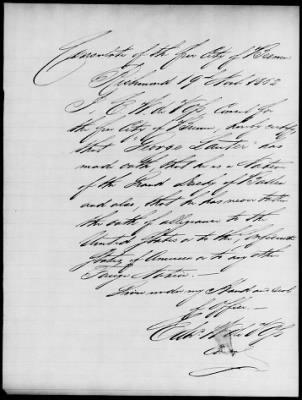 Consulate of the free City of Bremen
Richmond 19 Nov 1862
I E. W. de Voss Consul for
the free City of Bremen, hereby certify
that George Lauter has
made oath that he is a Native
of the Grand Duchy of Baden
and also, that he has never taken
the oath of allegiance to the
United States or to the Confederate
States of America or to any other
Foreign Nation.—
Given under my Hand and Seal
of Office.—
Edw. W. de Voss
Consul